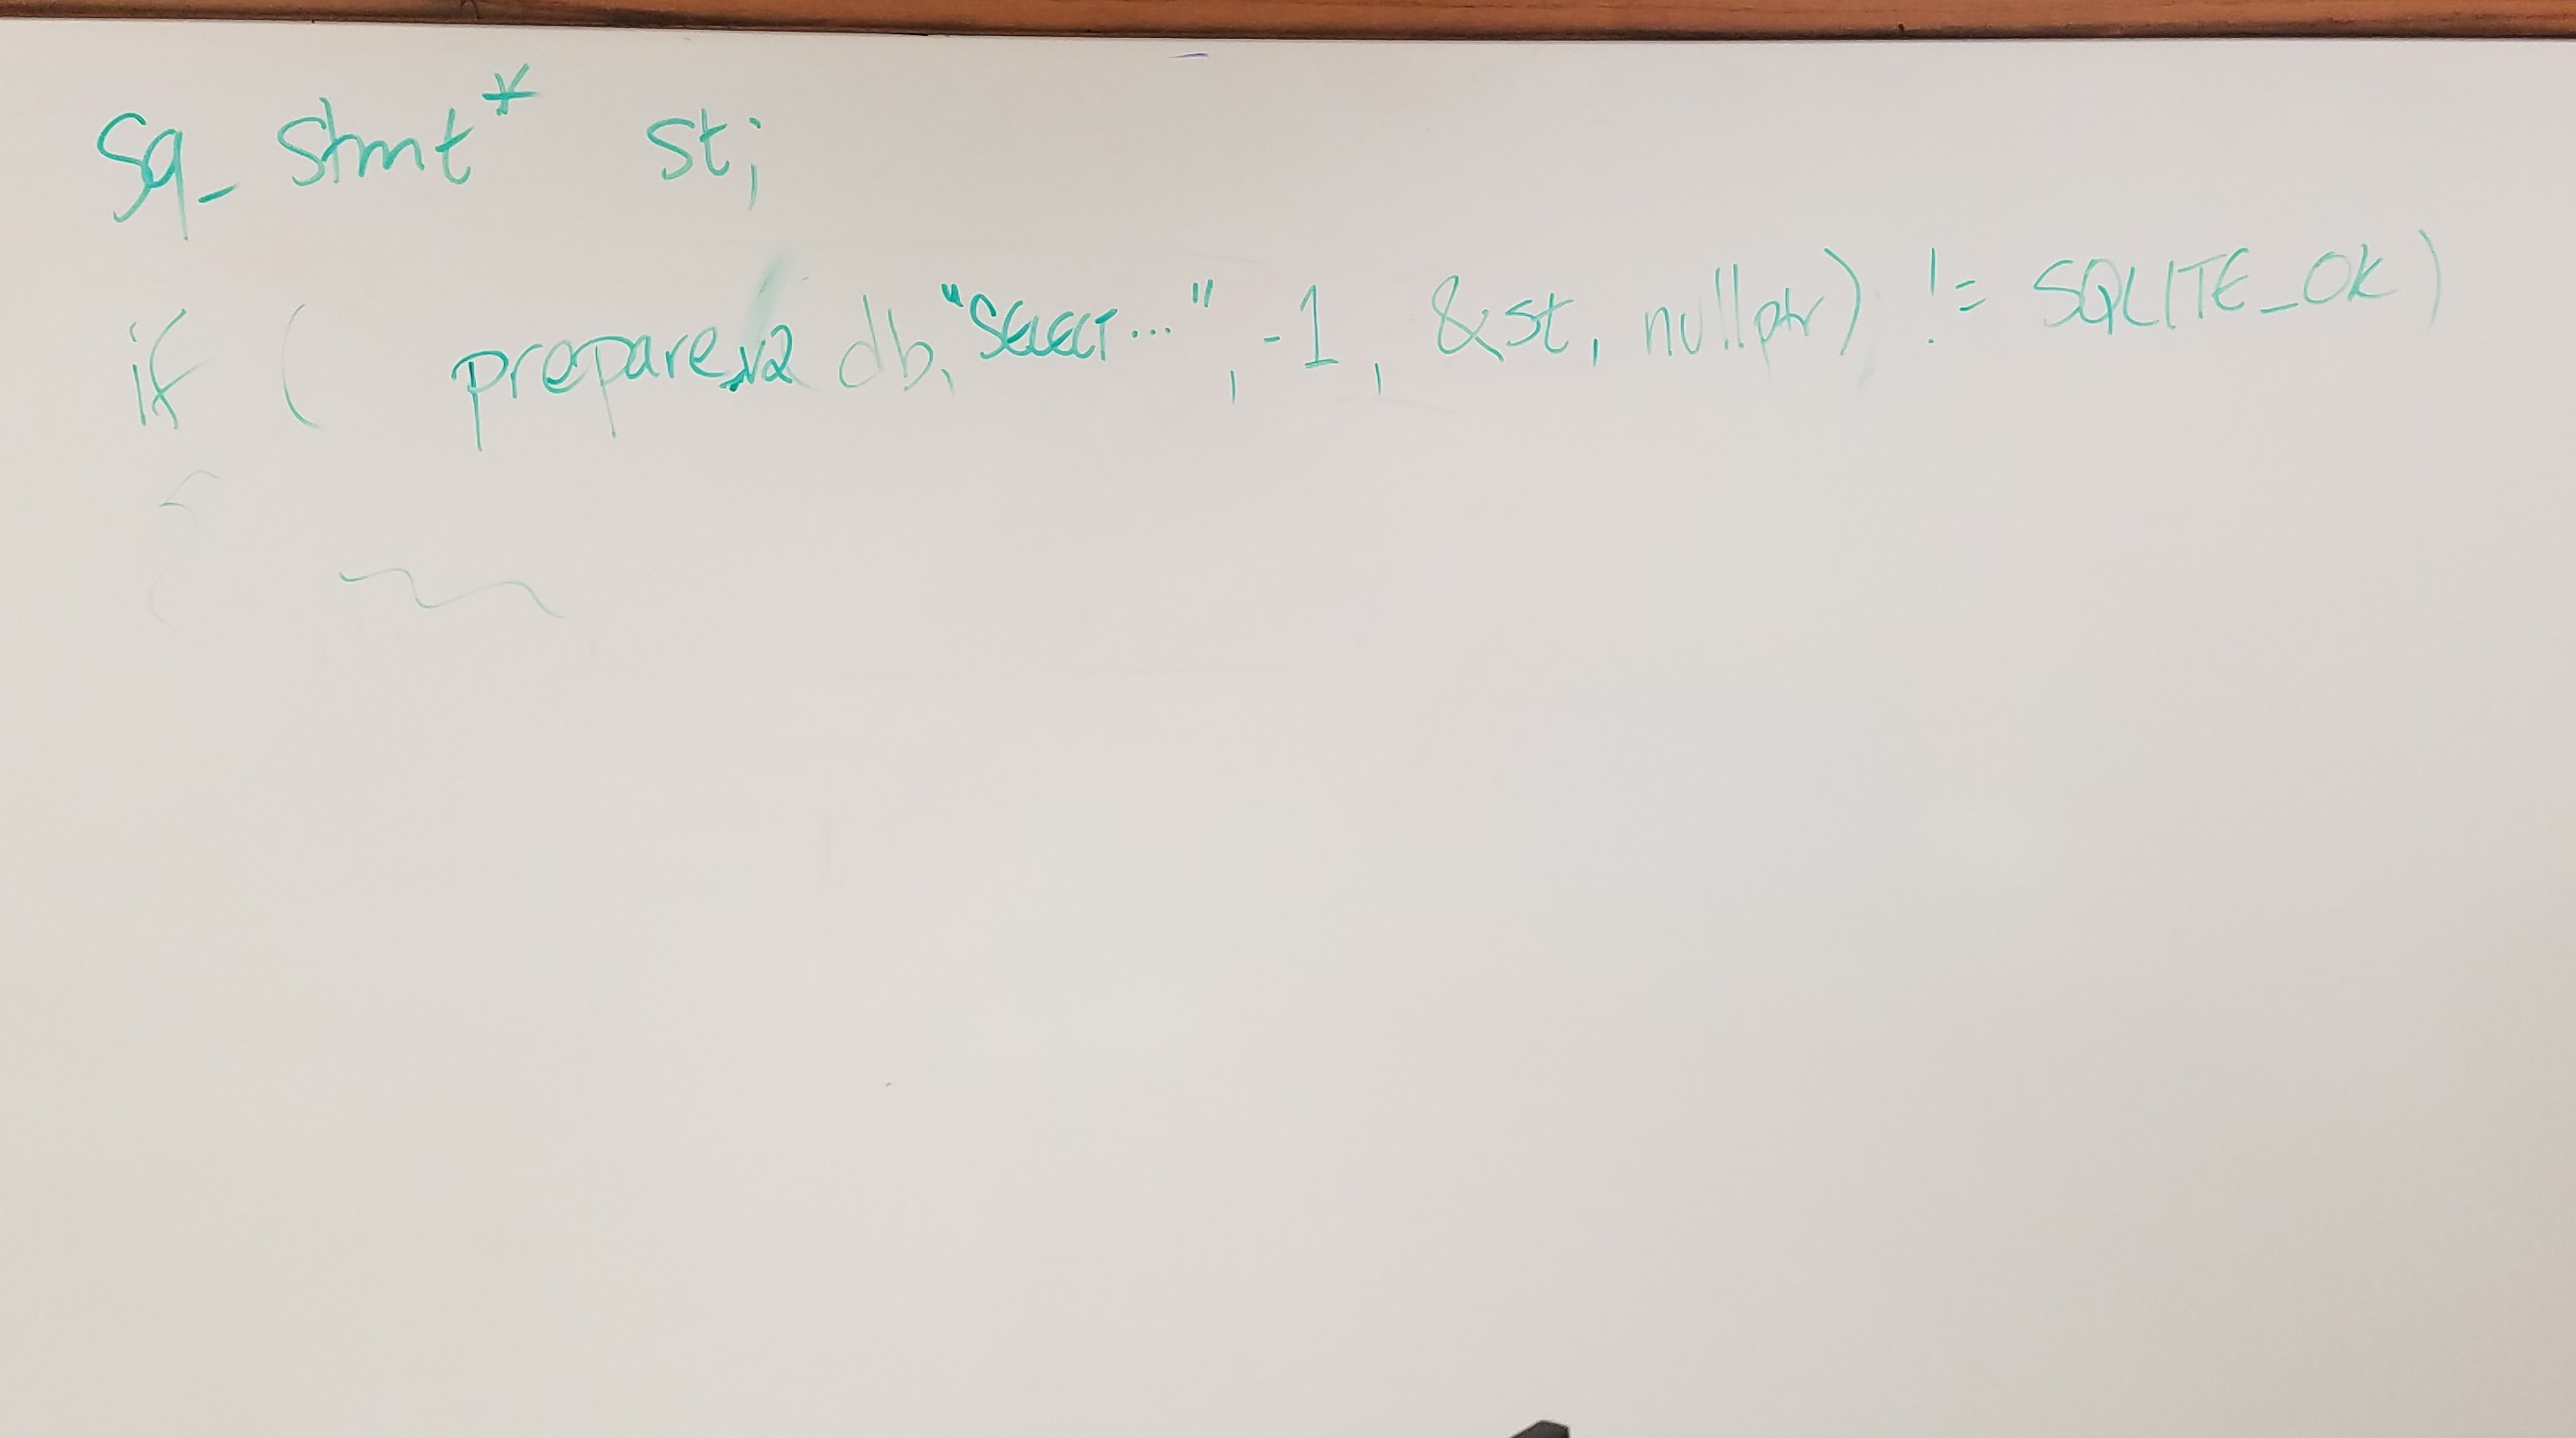 Sq_ stmt* st;
if ( prepare_v2 db, "SELECT...", -1, &st, nullptr) != SQLITE_OK)
{